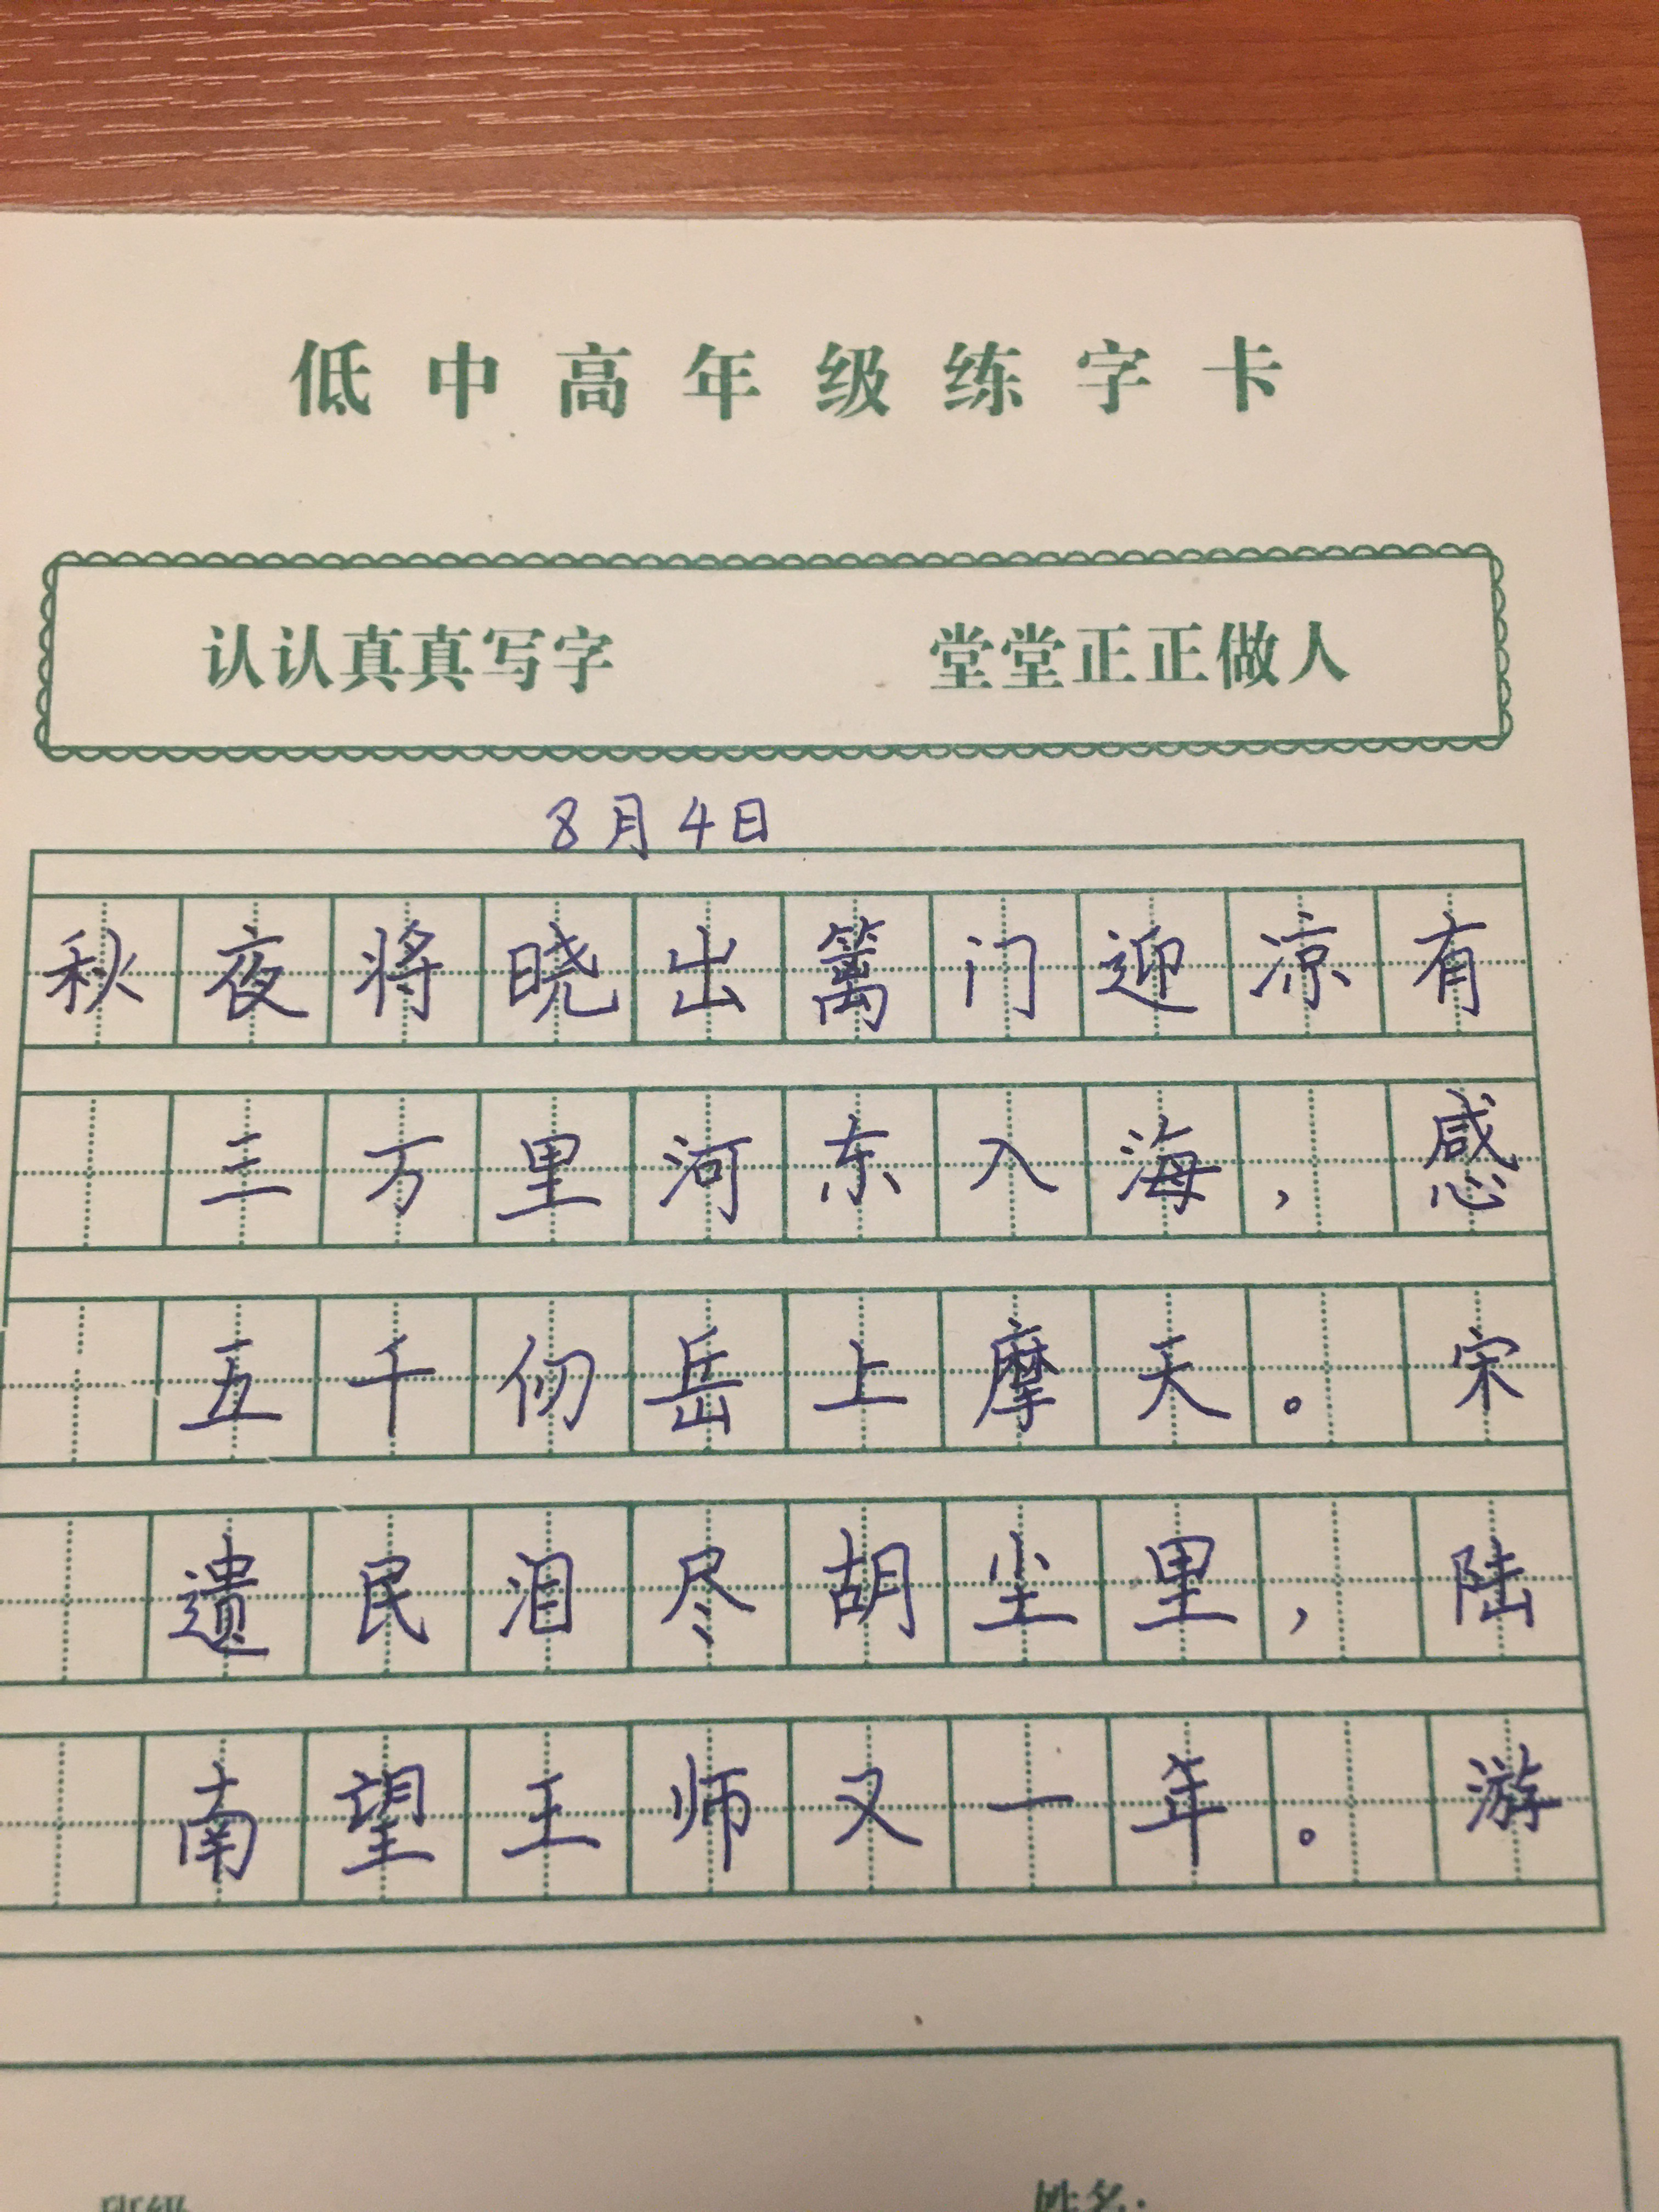 低中高年级练字卡
认认真真写字 堂堂正正做人
8月4日
秋夜将晓出篱门迎凉有
三万里河东入海，感
五千仞岳上摩天。宋
遗民泪尽胡尘里，陆
南望王师又一年。游
姓名：